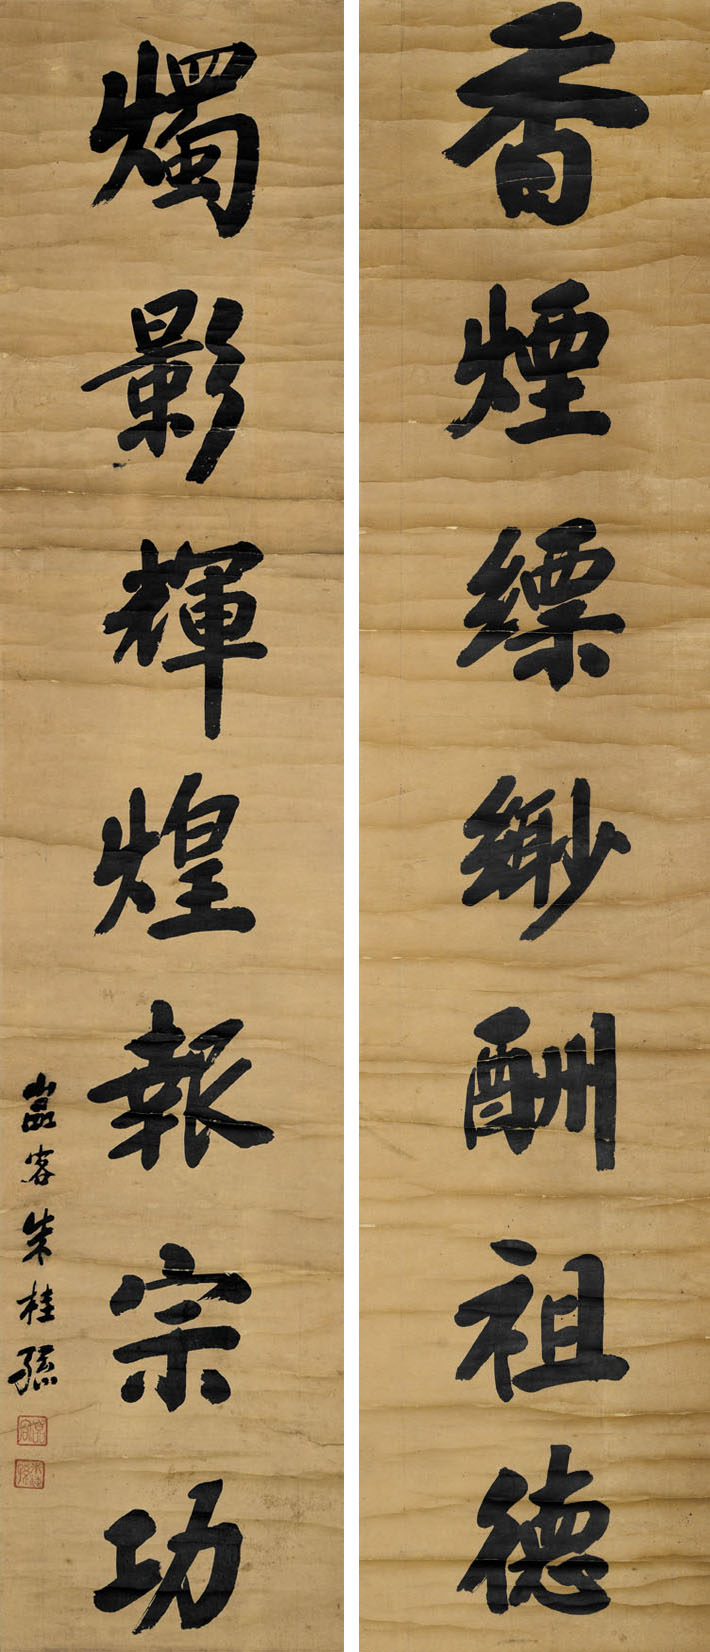 香煙縹緲酬祖德
燭影輝煌報宗功
嵒客朱桂孫